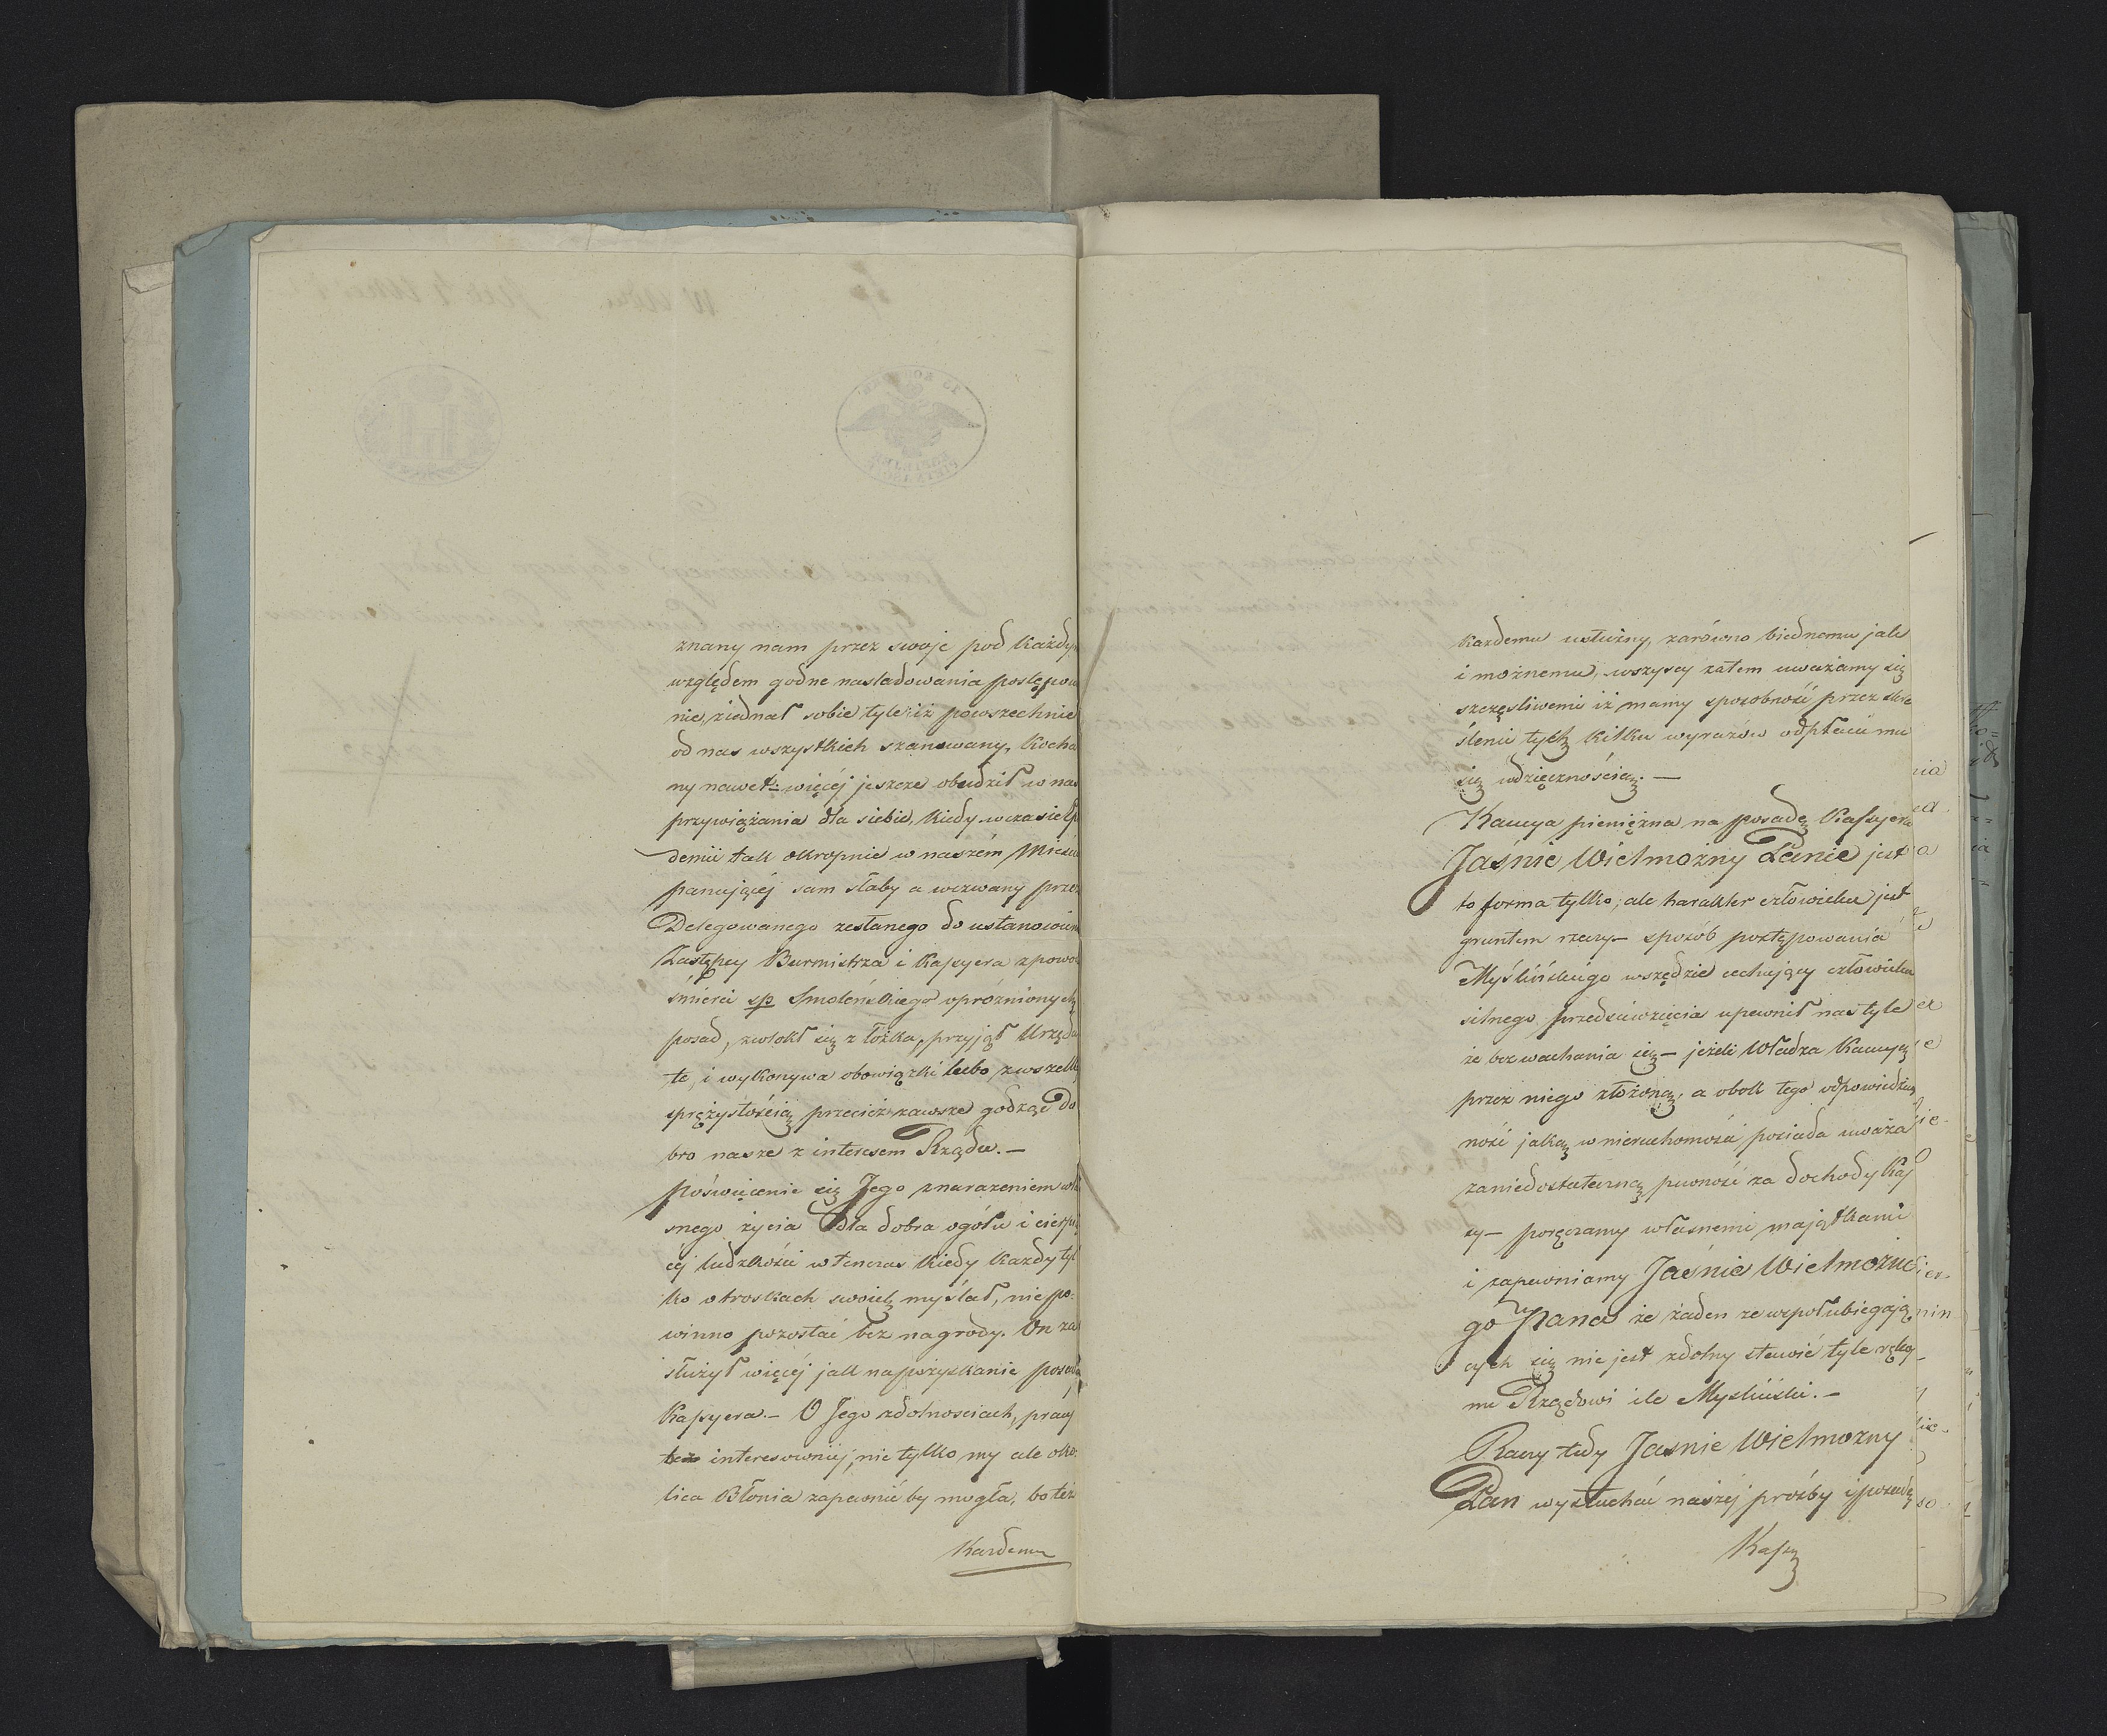 znany nam przez swoje pod każdy
względem godne nasladowania postępow
nie, ziednał sobie tyle iż powszechnie
od nas wszystkich szanowany, Kocha
ny nawet – więcéj jeszcze obudził w nas
przywiązania dla siebie, kiedy w czasie Ep
demii tak okropnie w naszém Mieści
panującéj sam słaby a wezwany przez
Delegowanego zesłanego do ustanowien
Zastępcy Burmistrza i Kassyera z powo
śmierci sp Smoleńskiego opróżnionych
posad, zwlokł się z łóżka, przyjął Urzęda
te, i wykonywa obowiązki lubo z wszelk
sprężystością przecież zawsze godząc Do
bro nasze z interesem Rządu. –
poświęcenie się Jego z narażeniem wła
snego życia dla dobra ogółu i cierpi
céj ludzkości w tenczas kiedy każdy tyl
ko o troskach swoich myślał, nie po-
winno pozostać bez nagrody. On za
służył więcéj jak na pozyskanie posad
Kassyera. – O Jego zdolnosciach, pracy
bez interesowniej, nie tylko my ale oko-
lica Błonia zapewnić by mogła, bo też
Każdemu
każdemu usłużny, zarówno biednemu jak
i możnemu, wszyscy zatem uważamy się
szczęsliwemi iż mamy sposobność przez skre
ślenie tych kilku wyrazów odpłacić mu
się wdzięcznością. –
Kaucya pieniężna na posadę Kassyera
Jaśnie Wielmożny Panie jest
to forma tylko, ale harakter człowieka jest
gruntem rzeczy – sposób postępowania
Myślińskiego wszędzie cechujący człowieka
silnego przedsiewzięcia upewnił nas tyle
że bez wachania się – jeżeli Władza Kaucyą
przez niego złożoną, a obok tego odpowiedzial
ność jaką w nieruchomości posiada uważa
za niedostateczną pewność za dochody Kas
sy – poręczamy własnemi majątkami
i zapewniamy Jaśnie Wielmożne
go Pana że żaden ze wspołubiegają
cych się nie jest zdolny stawić tyle rękoj
mi Rządowi ile Mysliński. –
Raczy tedy Jasnie Wielmożny
Pan wysłuchać naszéj prośby i posadę
Kassy